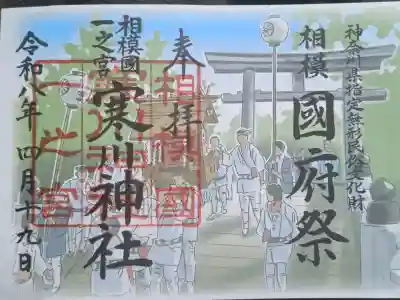 神奈川県指定無形民俗文化財
相模國府祭
奉拝
相模國
一之宮
寒川神社
令和八年 四月十九日